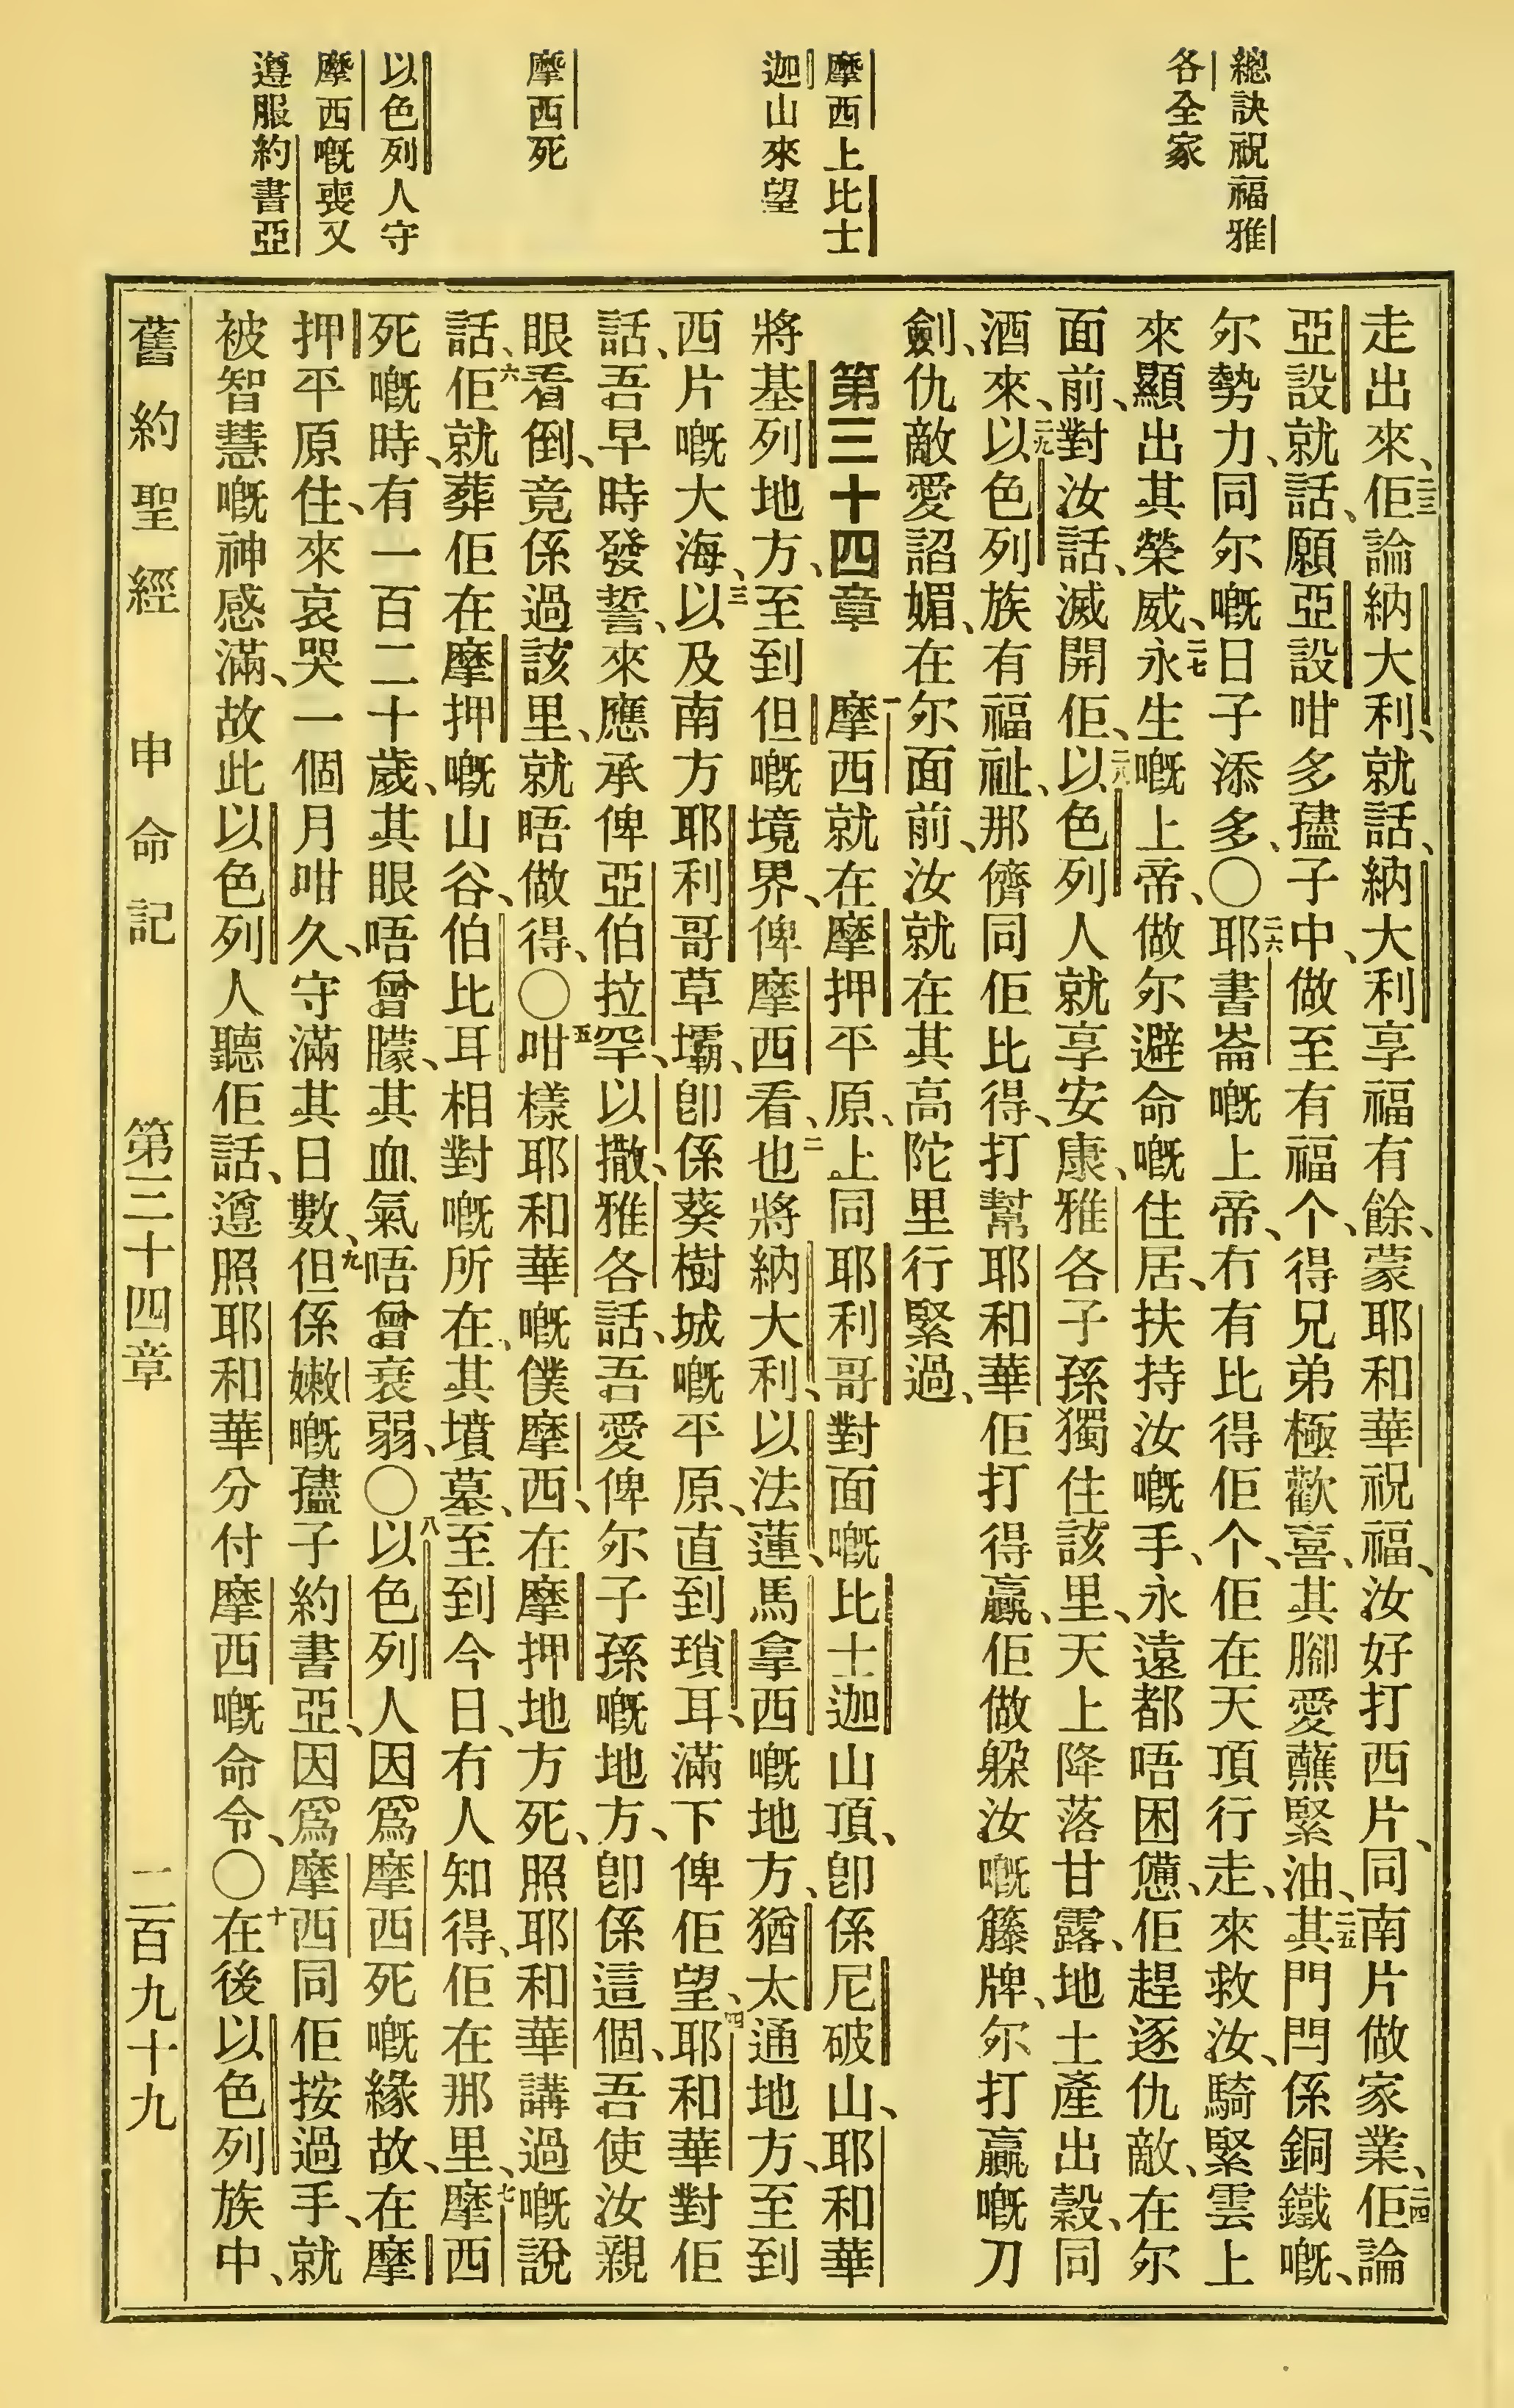 總訣祝福雅
各全家
摩西上比士
迦山來望
摩西死
以色列人守
摩西嘅喪又
遵服約書亞
走出來、二三佢論納大利、就話、納大利享福有餘、蒙耶和華祝福、汝好打西片、同南片做家業、二四佢論
亞設就話、願亞設咁多㜽子中、做至有福个、得兄弟極歡喜、其腳愛蘸緊油、二五其門閂係銅鐵嘅、
尔勢力、同尔嘅日子添多、〇二六耶書崙嘅上帝、冇有比得佢个、佢在天頂行走、來救汝、騎緊雲上
來顯出其榮威、二七永生嘅上帝、做尔避命嘅住居、扶持汝嘅手、永遠都唔困憊、佢趕逐仇敵、在尔
面前、對汝話、滅開佢、二八以色列人就享安康、雅各子孫獨住該里、天上降落甘露、地土產出穀、同
酒來、二九以色列族有福祉、那儕同佢比得、打幫耶和華佢打得贏、佢做躲汝嘅籐牌、尔打贏嘅刀
劍、仇敵愛諂媚、在尔面前、汝就在其高陀里行緊過、
第三十四章　一摩西就在摩押平原、上同耶利哥對面嘅比士迦山頂、卽係尼破山、耶和華
將基列地方、至到但嘅境界、俾摩西看、二也將納大利、以法蓮、馬拿西嘅地方、猶太通地方、至到
西片嘅大海、三以及南方耶利哥草壩、卽係葵樹城嘅平原、直到瑣耳、滿下俾佢望、四耶和華對佢
話、吾早時發誓、來應承俾亞伯拉罕、以撒、雅各話、吾愛俾尔子孫嘅地方、卽係這個、吾使汝親
眼看倒、竟係過該里、就唔做得、〇五咁樣耶和華嘅僕摩西、在摩押地方死、照耶和華講過嘅說
話、六佢就葬佢在摩押嘅山谷、伯比耳相對嘅所在、其墳墓、至到今日、冇人知得、佢在那里、七摩西
死嘅時、有一百二十歲、其眼唔曾朦、其血氣唔曾衰弱、〇八以色列人因爲摩西死嘅緣故、在摩
押平原住、來哀哭一個月咁久、守滿其日數、九但係嫩嘅㜽子約書亞、因爲摩西同佢按過手、就
被智慧嘅神感滿、故此以色列人聽佢話、遵照耶和華分付摩西嘅命令、〇十在後以色列族中、
舊約聖經　申命記　第三十四章　二百九十九